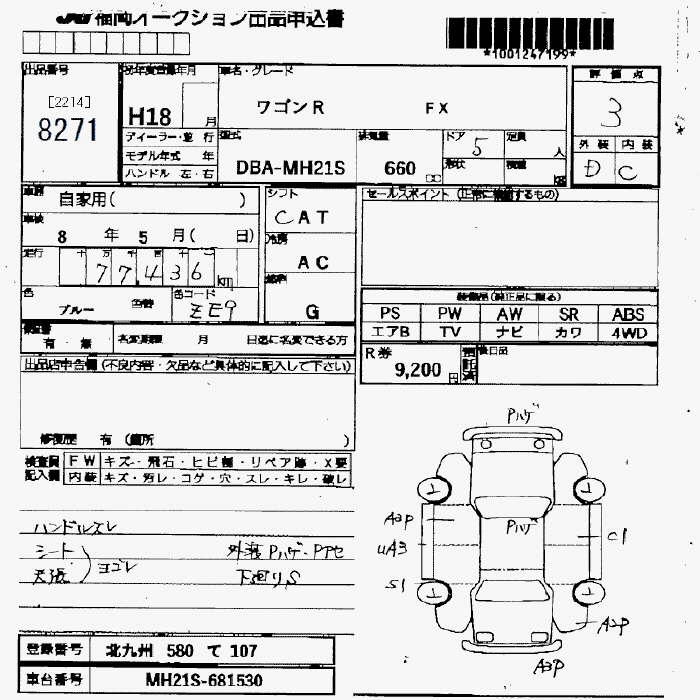 JU福岡オークション出品申込書
*1001247199*
出品番号
[2214]
8271
初年度登録年月
H18 月
ディーラー・並行
モデル年式 年
ハンドル 左・右
車名・グレード
ワゴンR FX
型式
DBA-MH21S
排気量
660 cc
ドア 5
形状
定員 人
積量 kg
評価点
3
外装 内装
D C
車歴
自家用( )
車検
8 年 5 月( 日)
走行 十 万 千 百 十
77,436 km
色
ブルー 色替
色コード
ZE9
シフト
CAT
冷房
AC
燃料
G
セールスポイント (正常に稼働するもの)
装備品(純正品に限る)
PS PW AW SR ABS
エアB TV ナビ カワ 4WD
保証書
有・無
名変期限 月 日迄に名変できる方
R券
9,200 円
預託済
後日品
出品店申告欄(不良内容・欠品など具体的に記入して下さい)
修復歴 有 (箇所 )
検査員記入欄
FW キズ・飛石・ヒビ割・リペア跡・X要
内装 キズ・汚レ・コゲ・穴・スレ・キレ・破レ
ハンドルスレ
シート
天張
ヨゴレ
外装Pハゲ・Pアセ
下廻りS
Pハゲ
Pハゲ
A2P
UA3
S1
C1
A2P
A3P
登録番号 北九州 580 て 107
車台番号 MH21S-681530